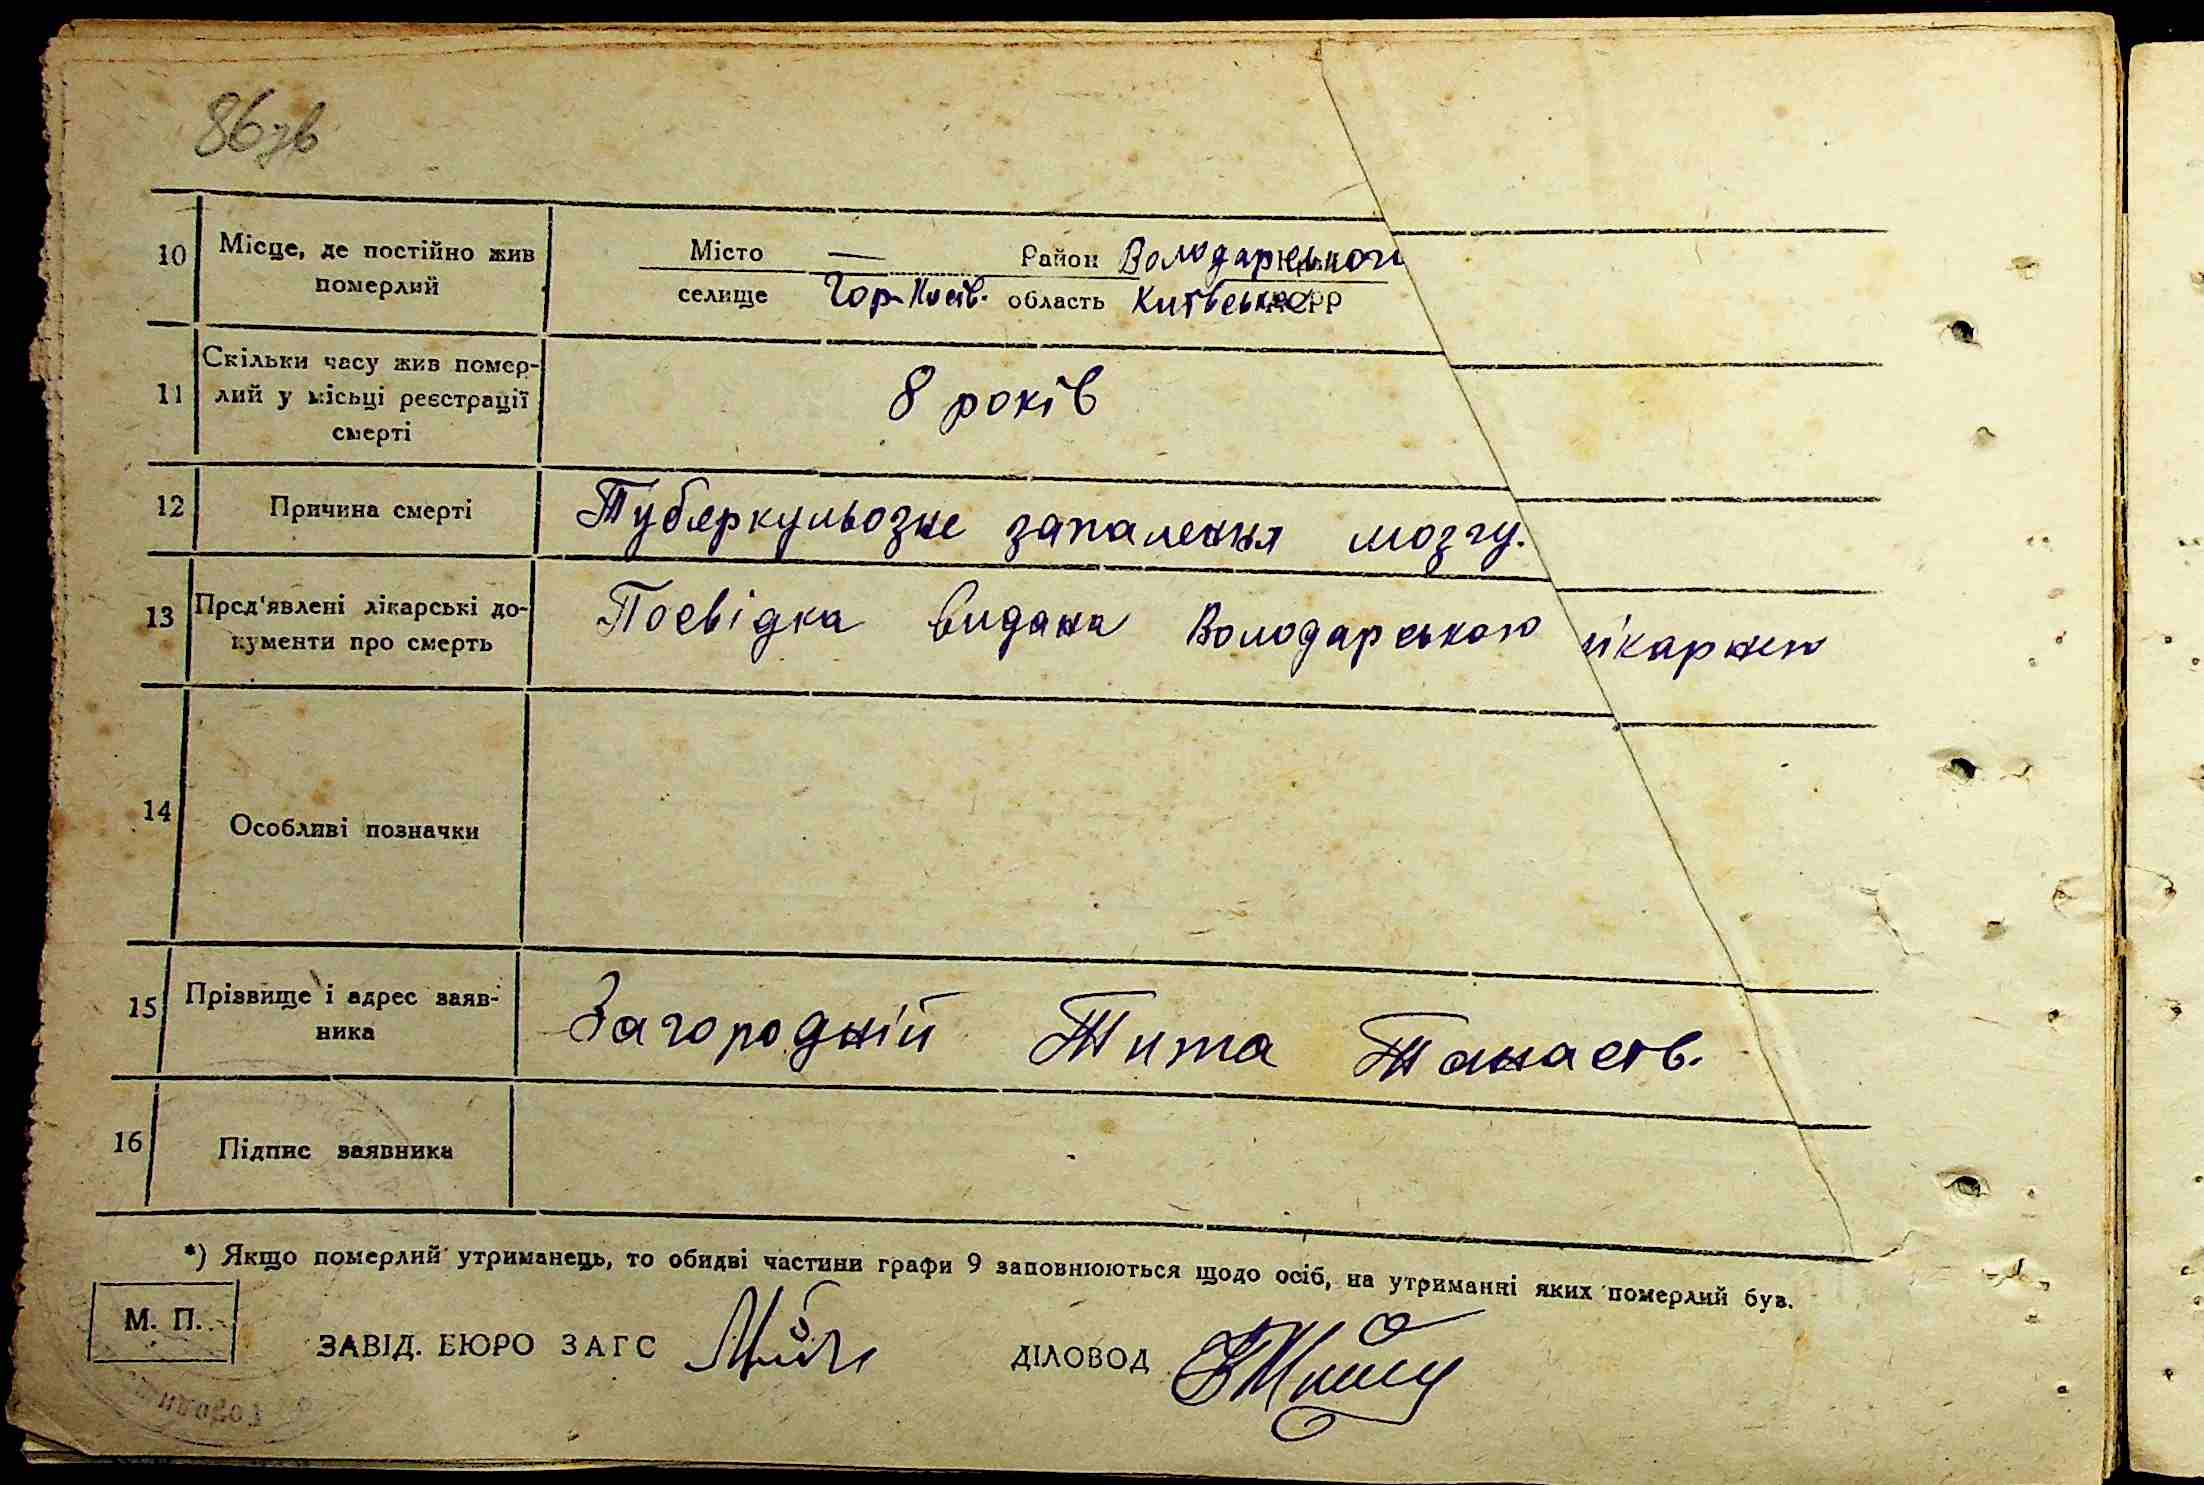 86зв
10 Місце, де постійно жив Місто — Район Володарського
померлий селище Гор-Пасів. область Київської РСР
11 Скільки часу жив помер-
лий у місьці реєстрації 8 років
смерті
12 Причина смерті Туберкульозне запалення мозгу.
13 Пред'явлені лікарські до- Посвідка видана Володарською лікарнею
кументи про смерть
14 Особливі позначки
15 Прізвище і адрес заяв- Загородній Тита Танасів.
ника
16 Підпис заявника
*) Якщо померлий утриманець, то обидві частини графи 9 заповнюються щодо осіб, на утриманні яких померлий був.
М. П.
ЗАВІД. БЮРО ЗАГС ДІЛОВОД